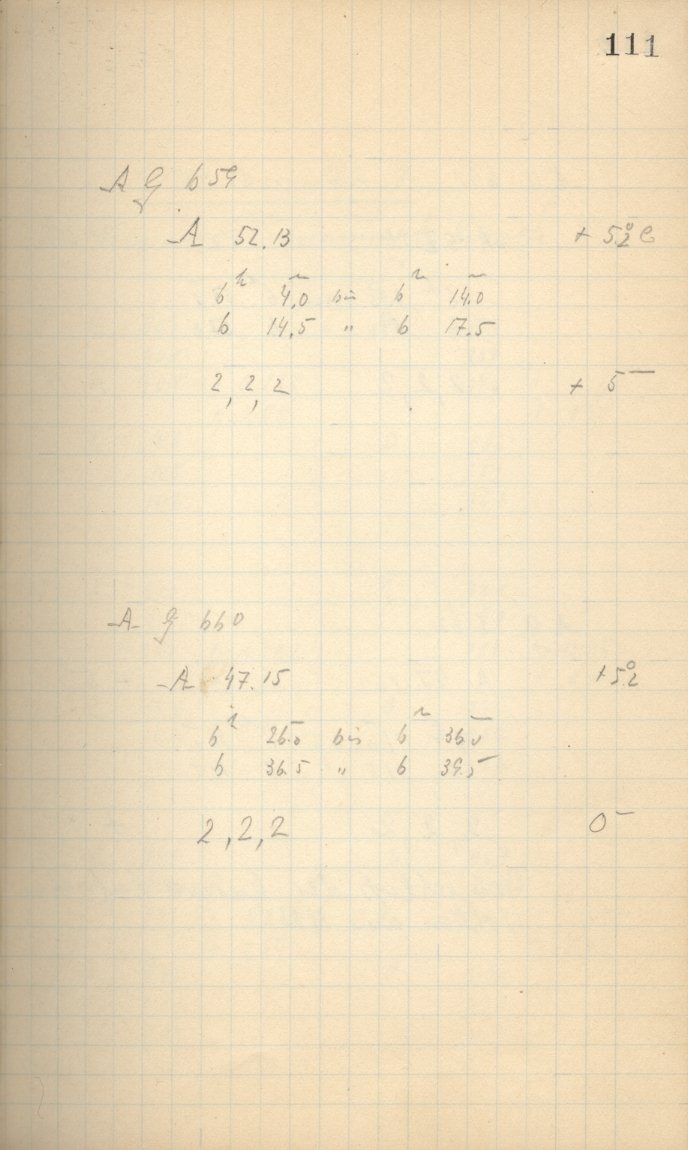 111
A G 659
A 52.13 + 5°.2 C
6ʰ 4,0ᵐ bis 6ʰ 14.0ᵐ
6 14,5 „ 6 17.5
2, 2, 2 + 5
A G 660
A 47.15 +5°.2
6ʰ 26.0ᵐ bis 6ʰ 36.0ᵐ
6 36.5 „ 6 39,5
2, 2, 2 0